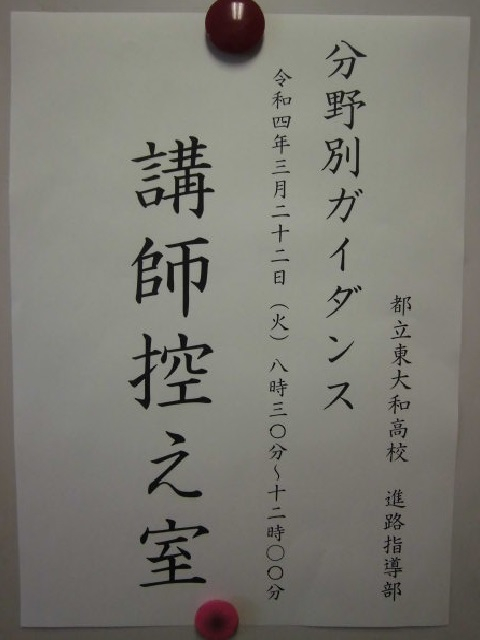 都立東大和高校　進路指導部
分野別ガイダンス
令和四年三月二十二日（火）八時三〇分～十二時〇〇分
講師控え室